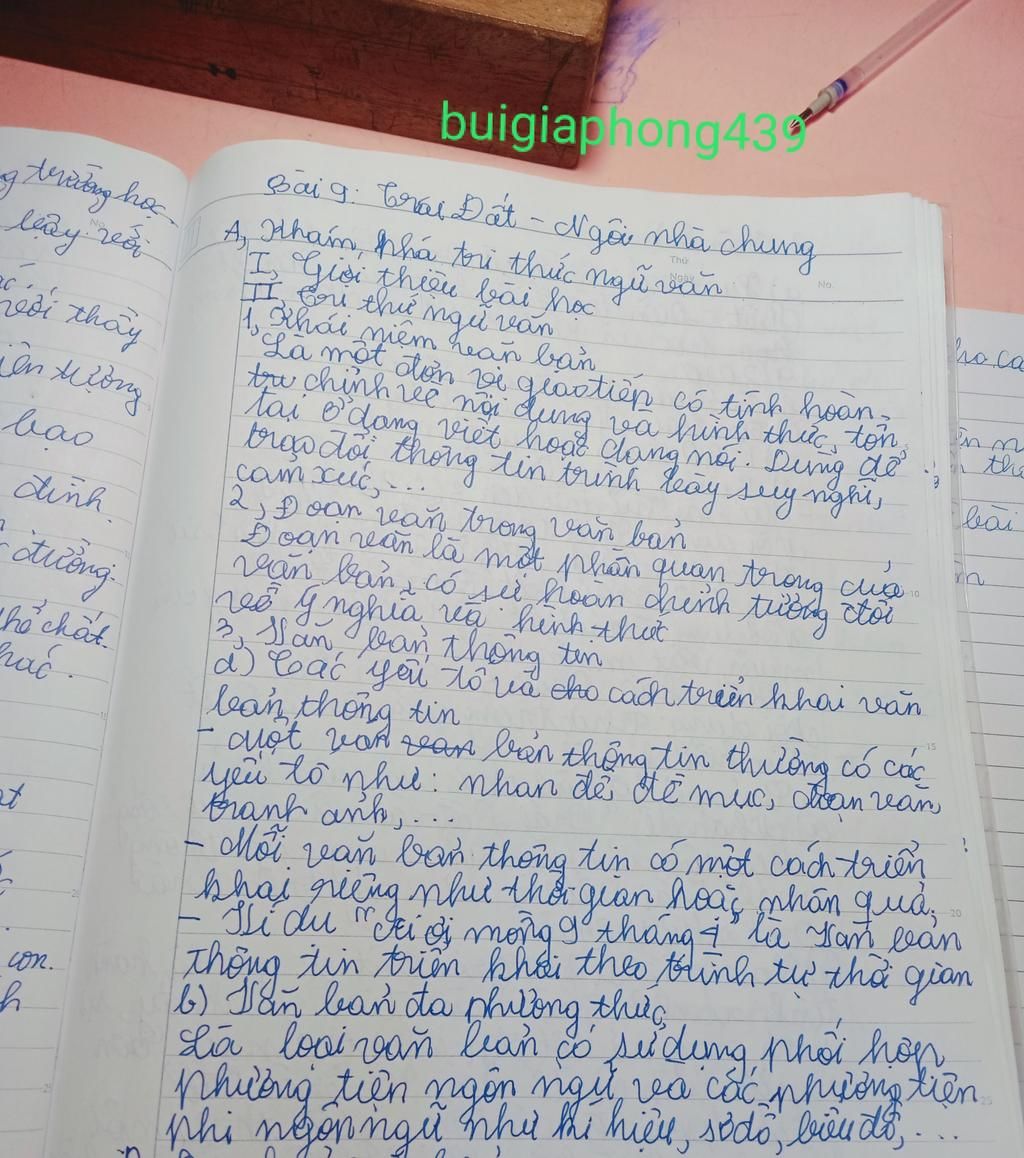 buigiaphong439
Bài 9: Trái Đất - Ngôi nhà chung
A, Khám phá tri thức ngữ văn
I, Giới thiệu bài học
II, tri thứ ngữ văn
1, Khái niệm văn bản
Là một đơn vị giao tiếp có tính hoàn
chỉnh về nội dung và hình thức, tồn
tại ở dạng viết hoặc dạng nói. Dùng để
trao đổi thông tin trình bày suy nghĩ,
cảm xúc, ...
2, Đoạn văn trong văn bản
Đoạn văn là một phần quan trọng của
văn bản, có sự hoàn chỉnh tương đối
về ý nghĩa và hình thức
3, Văn bản thông tin
a) Các yếu tố và cách triển khai văn
bản thông tin
- Một văn bản thông tin thường có các
yếu tố như: nhan đề, đề mục, đoạn văn,
tranh ảnh, ...
- Mỗi văn bản thông tin có một cách triển
khai riêng như thời gian hoặc nhân quả.
- Ví dụ " ơi mồng 9 tháng 4" là Văn bản
thông tin triển khai theo trình tự thời gian
b) Văn bản đa phương thức
Là loại văn bản có sử dụng phối hợp
phương tiện ngôn ngữ và các phương tiện
phi ngôn ngữ như kí hiệu, sơ đồ, biểu đồ, ...
trường học
vậy với
với thầy
tượng
bạo
đình.
đường.
chất.
con.
bài